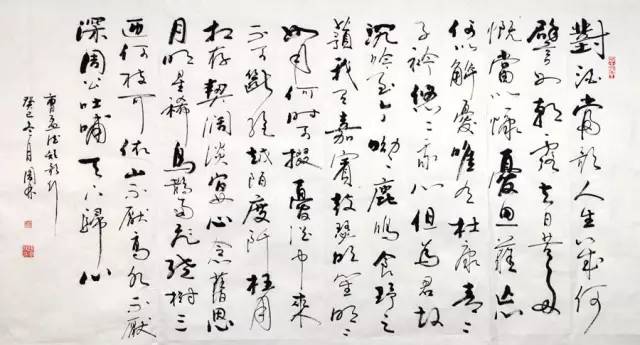 對酒當歌人生幾何
譬如朝露去日苦多
慨當以慷憂思難忘
何以解憂唯有杜康青〻
子衿悠〻我心但為君故
沉吟至今呦〻鹿鳴食野之
蘋我有嘉賓鼓瑟吹笙明〻
如月何時可掇憂從中來
不可斷絕越陌度阡枉用
相存契闊談宴心念舊恩
月明星稀烏鵲南飛繞樹三
匝何枝可依山不厭高水不厭
深周公吐哺天下歸心
曹孟德短歌行
癸巳冬月